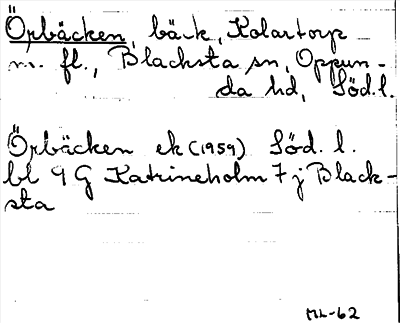 Örbäcken, bäck, Kolartorp
m. fl., Blacksta sn, Oppun-
da hd, Söd.l.
Örbäcken ek (1959) Söd. l.
bl 9 G Katrineholm 7 j Black-
sta
ML-62